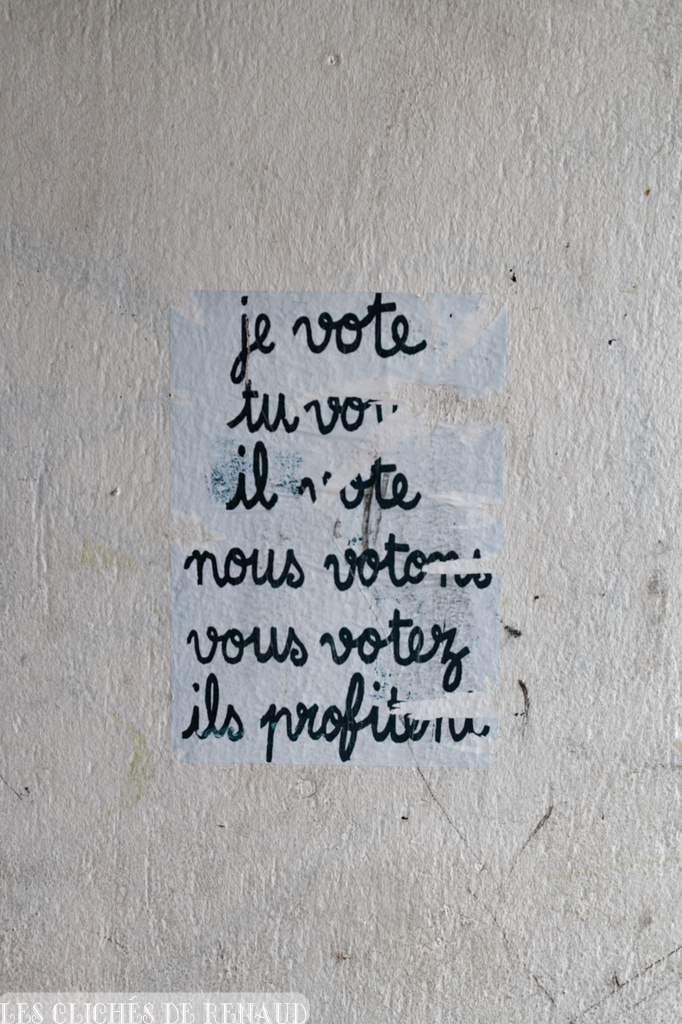 je vote
tu vo
il vote
nous votons
vous votez
ils profitent
LES CLICHÉS DE RENAUD